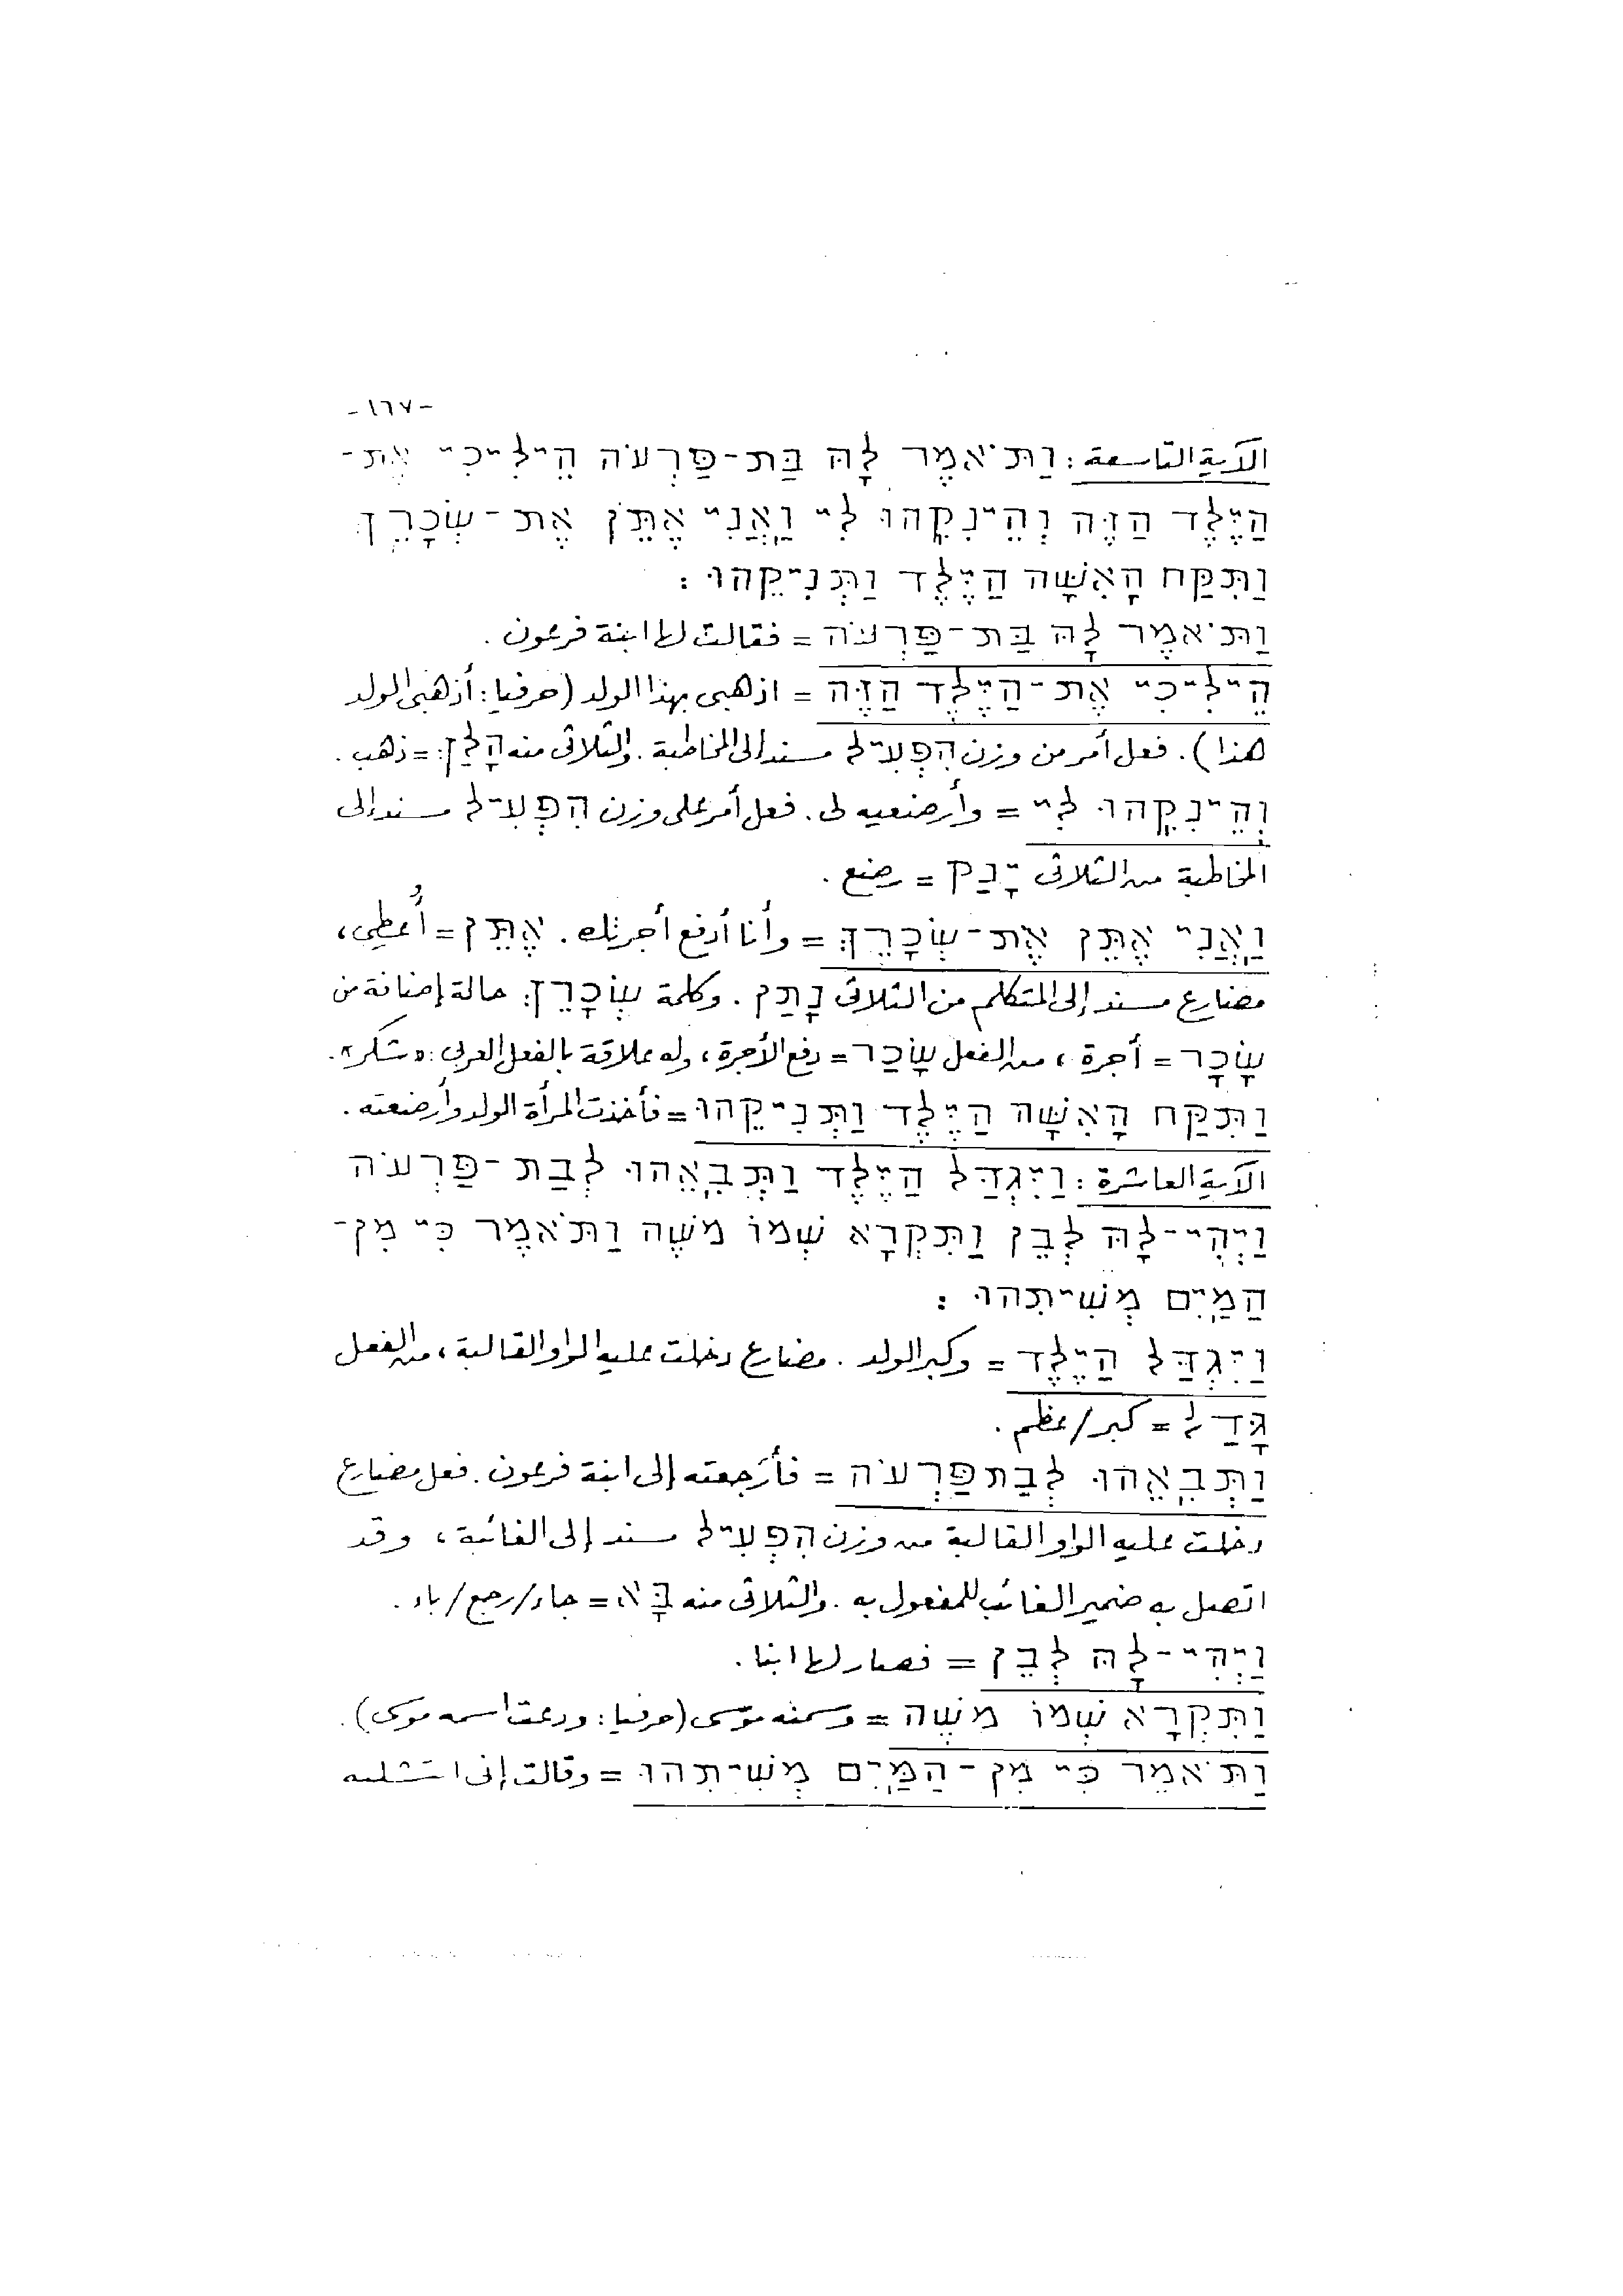 -١٦٧-
الآية التاسعة : וַתֹּאמֶר לָהּ בַּת-פַּרְעֹה הֵילִיכִי אֶת-
הַיֶּלֶד הַזֶּה וְהֵינִקִהוּ לִי וַאֲנִי אֶתֵּן אֶת-שְׂכָרֵךְ
וַתִּקַּח הָאִשָּׁה הַיֶּלֶד וַתְּנִיקֵהוּ :
וַתֹּאמֶר לָהּ בַּת-פַּרְעֹה = فقالت لها ابنة فرعون .
הֵילִיכִי אֶת-הַיֶּלֶד הַזֶּה = اذهبى بهذا الولد (حرفيا : أذهبى الولد
هذا) . فعل أمر من وزن הִפְעִיל مسند إلى المخاطبة . والثلاثى منه הָלַךְ = ذهب .
וְהֵינִקִהוּ לִי = وأرضعيه لى . فعل أمر على وزن הִפְעִיל مسند إلى
المخاطبة من الثلاثى יָנַק = رضع .
וַאֲנִי אֶתֵּן אֶת-שְׂכָרֵךְ = وأنا أدفع أجرتك . אֶתֵּן = أُعطِي ،
مضارع مسند إلى المتكلم من الثلاثى נָתַן . وكلمة שְׂכָרֵךְ حالة إضافة من
שָׂכָר = أجرة ، من الفعل שָׂכַר = دفع الأجرة ، وله علاقة بالفعل العربى : «شكر» .
וַתִּקַּח הָאִשָּׁה הַיֶּלֶד וַתְּנִיקֵהוּ = فأخذت المرأة الولد وأرضعته .
الآية العاشرة : וַיִּגְדַּל הַיֶּלֶד וַתְּבִאֵהוּ לְבַת-פַּרְעֹה
וַיְהִי-לָהּ לְבֵן וַתִּקְרָא שְׁמוֹ מֹשֶׁה וַתֹּאמֶר כִּי מִן-
הַמַּיִם מְשִׁיתִהוּ :
וַיִּגְדַּל הַיֶּלֶד = وكبر الولد . مضارع دخلت عليه الواو القالبة ، من الفعل
גָּדַל = كبر/عظم .
וַתְּבִאֵהוּ לְבַת פַּרְעֹה = فأرجعته إلى ابنة فرعون . فعل مضارع
دخلت عليه الواو القالبة من وزن הִפְעִיל مسند إلى الغائبة ، وقد
اتصل به ضمير الغائب للمفعول به . والثلاثى منه בָּא = جاء/رجع/باء .
וַיְהִי-לָהּ לְבֵן = فصار لها ابنا .
וַתִּקְרָא שְׁמוֹ מֹשֶׁה = وسمته موسى (حرفيا : ودعت اسمه موسى) .
וַתֹּאמֶר כִּי מִן-הַמַּיִם מְשִׁיתִהוּ = وقالت إنى انتشلته